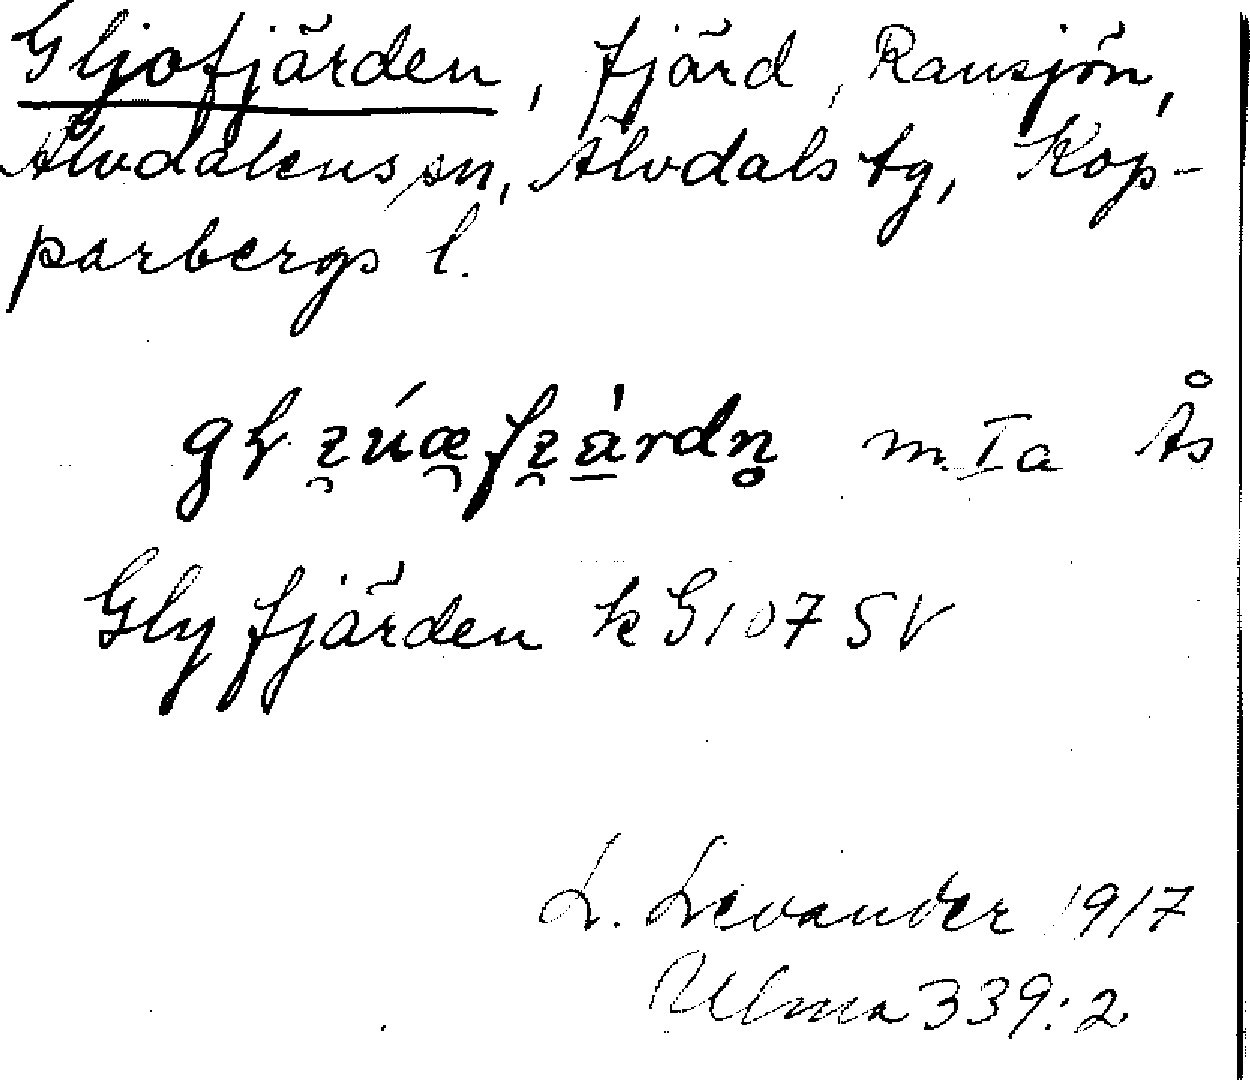 Gljofjärden, fjärd, Ransjön,
Älvdalens sn, Älvdals tg, Kop-
parbergs l.
m. Ia Ås
Glyfjärden k G 107 SV
L. Levander 1917
Ulma 339:2